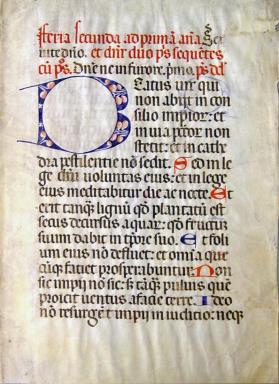 feria secunda ad primā añā Ser
uite dño. et dñr duo pˢ sequētes
cū pˢ. Dñe ne in furore. pmo. pˢ dd
Beatus uir qui
non abijt in con
silio impioꝝ: et
in uia pctoꝝ non
stetit: et in cathe
dra pestilentie nō sedit. Sed in le
ge dñi uoluntas eius: et in lege
eius meditabitur die ac nocte. Et
erit tanq̄ lignū qd̄ plantatū est
secus decursus aquaꝝ: qd̄ fructū
suum dabit in tpore suo. Et foli
um eius nō defluet: et omnia que
cūq̄ faciet prosperabuntur. Non
sic impij nō sic: s̄ tanq̄ puluis quē
proicit uentus a facie terre. Ideo
nō resurgent impij in iudicio: neqꝫ